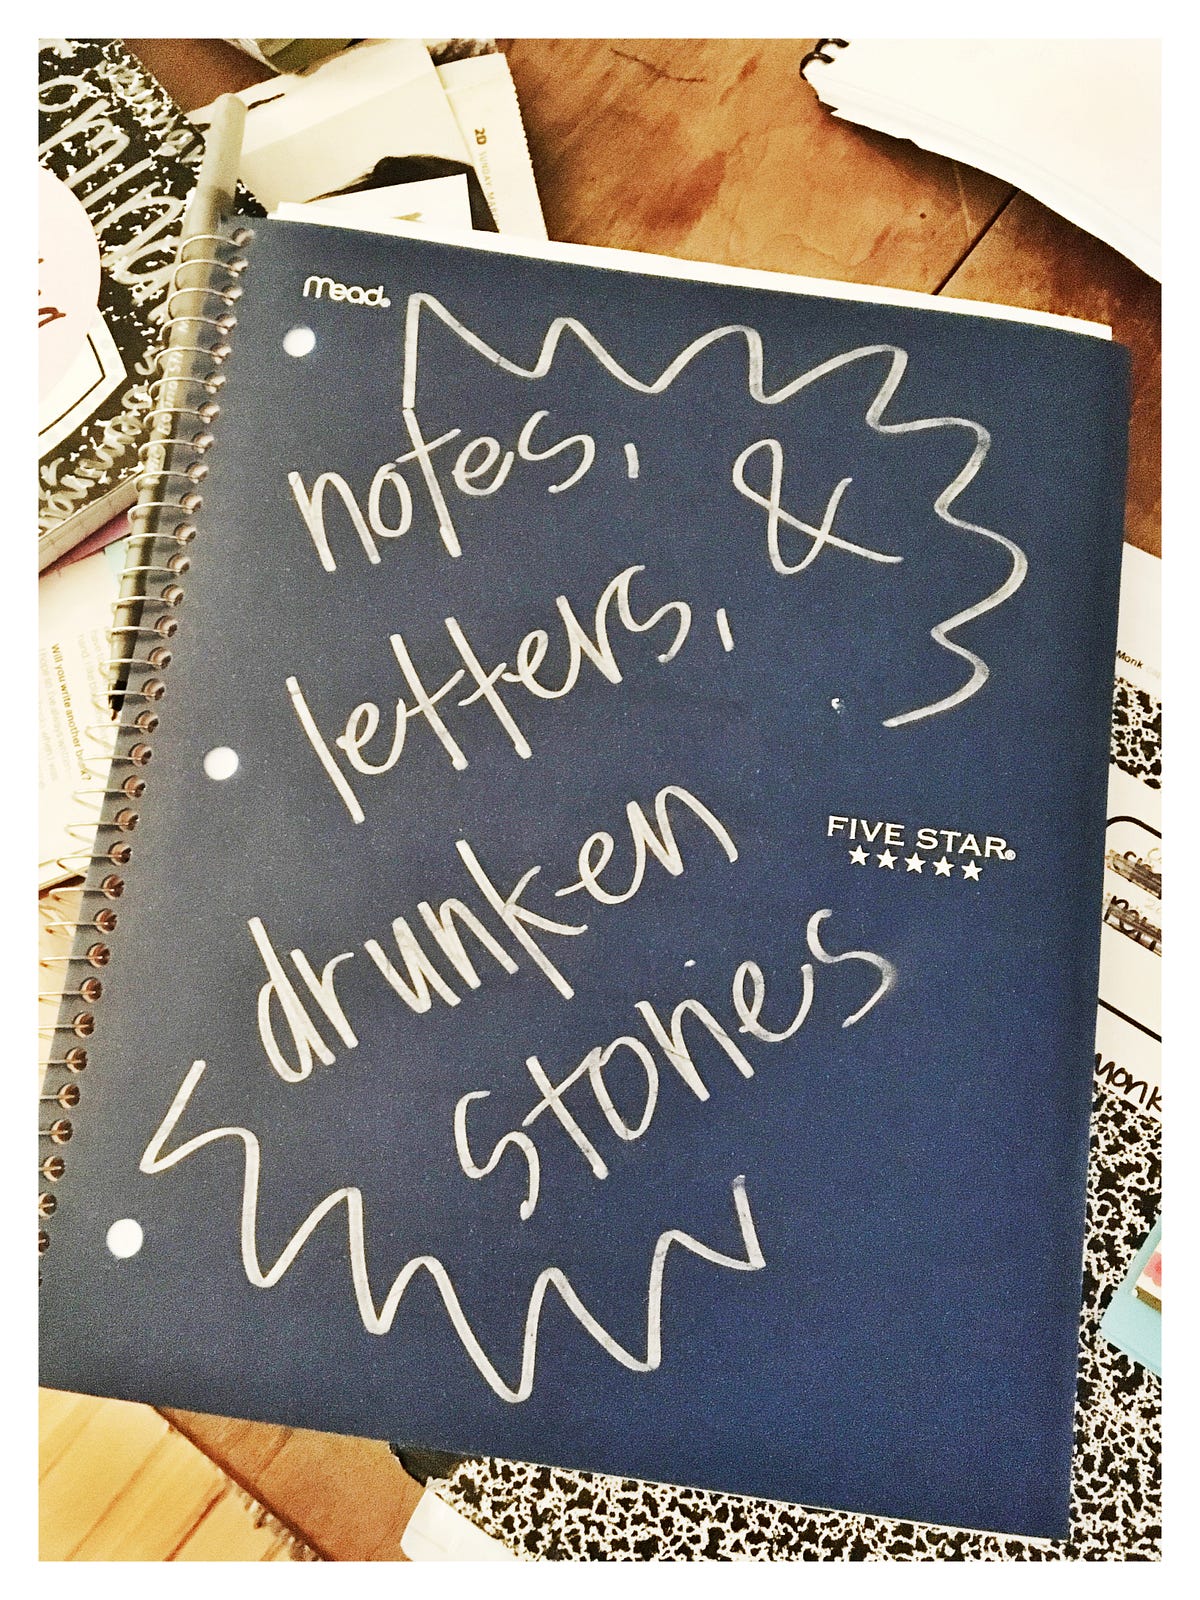 20 SUNDAY
Mead
notes, &
letters,
drunken
stories
FIVE STAR
Will you write another book?
Monk
Monk